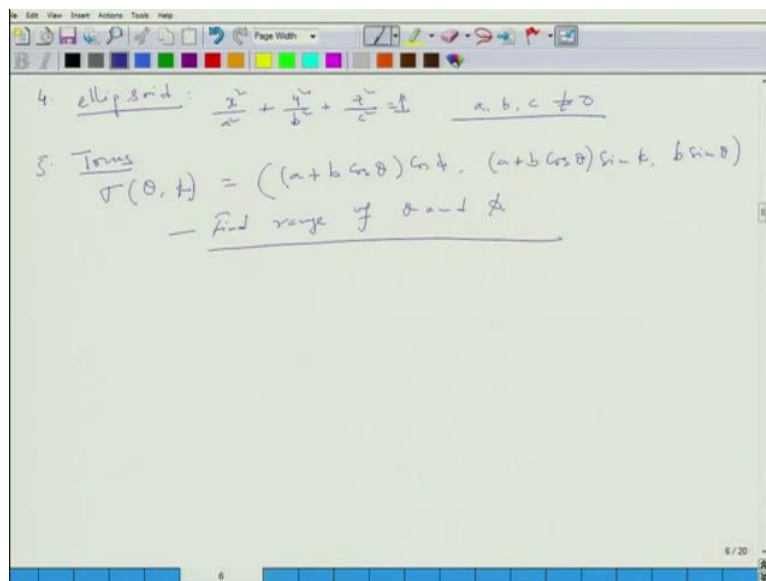 File Edit View Insert Actions Tools Help
Page Width
B I
4. ellipsoid: x²/a² + y²/b² + z²/c² = 1 a, b, c ≠ 0
5. Torus
σ(θ, ϕ) = ((a + b cos θ) cos ϕ, (a + b cos θ) sin ϕ, b sin θ)
— Find range of θ and ϕ
6 / 20
6